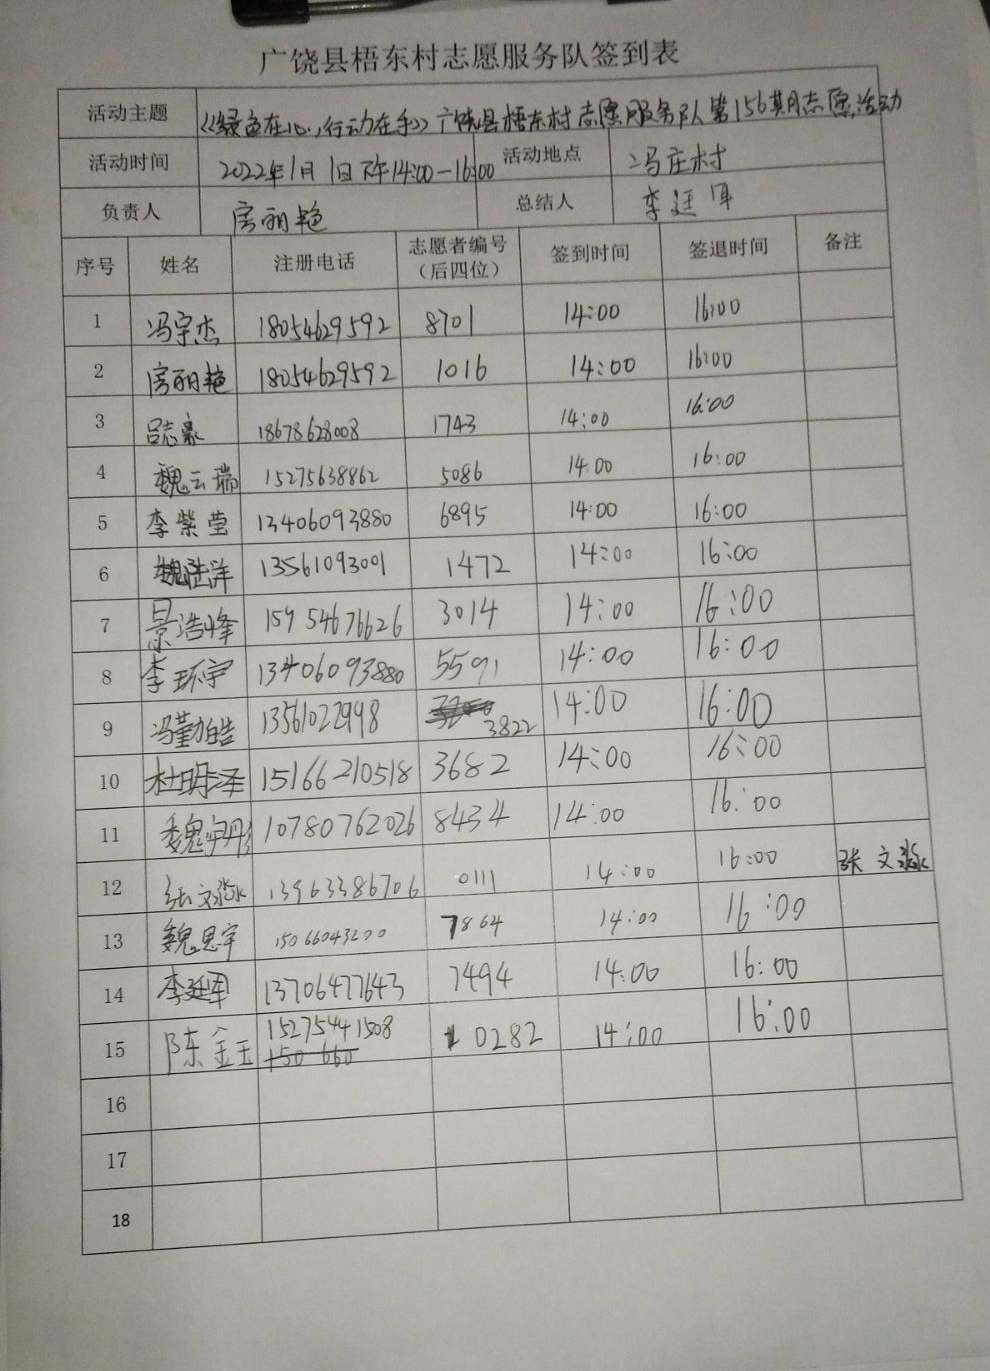 广饶县梧东村志愿服务队签到表
活动主题 《绿色在心,行动在手》广饶县梧东村志愿服务队第156期志愿活动
活动时间 2022年1月1日下午14:00-16:00 活动地点 冯庄村
负责人 房丽艳 总结人 李廷军
序号 姓名 注册电话 志愿者编号(后四位) 签到时间 签退时间 备注
1 冯宇杰 18054629592 8701 14:00 16:00
2 房丽艳 18054629592 1016 14:00 16:00
3 吕志豪 18678628008 1743 14:00 16:00
4 魏云瑞 15275638862 5086 14:00 16:00
5 李紫莹 13406093880 6895 14:00 16:00
6 魏陆洋 13561093001 1472 14:00 16:00
7 景浩峰 15954676626 3014 14:00 16:00
8 李环宇 13406093880 5591 14:00 16:00
9 冯勤皓 13561022998 3822 14:00 16:00
10 杜明泽 15166210518 3682 14:00 16:00
11 魏宇彤 10780762026 8434 14:00 16:00
12 张文淼 13963386706 0111 14:00 16:00 张文淼
13 魏思宇 15066043200 7864 14:00 16:00
14 李廷军 13706477643 7494 14:00 16:00
15 陈金玉 15275441508 0282 14:00 16:00
150 660
16
17
18